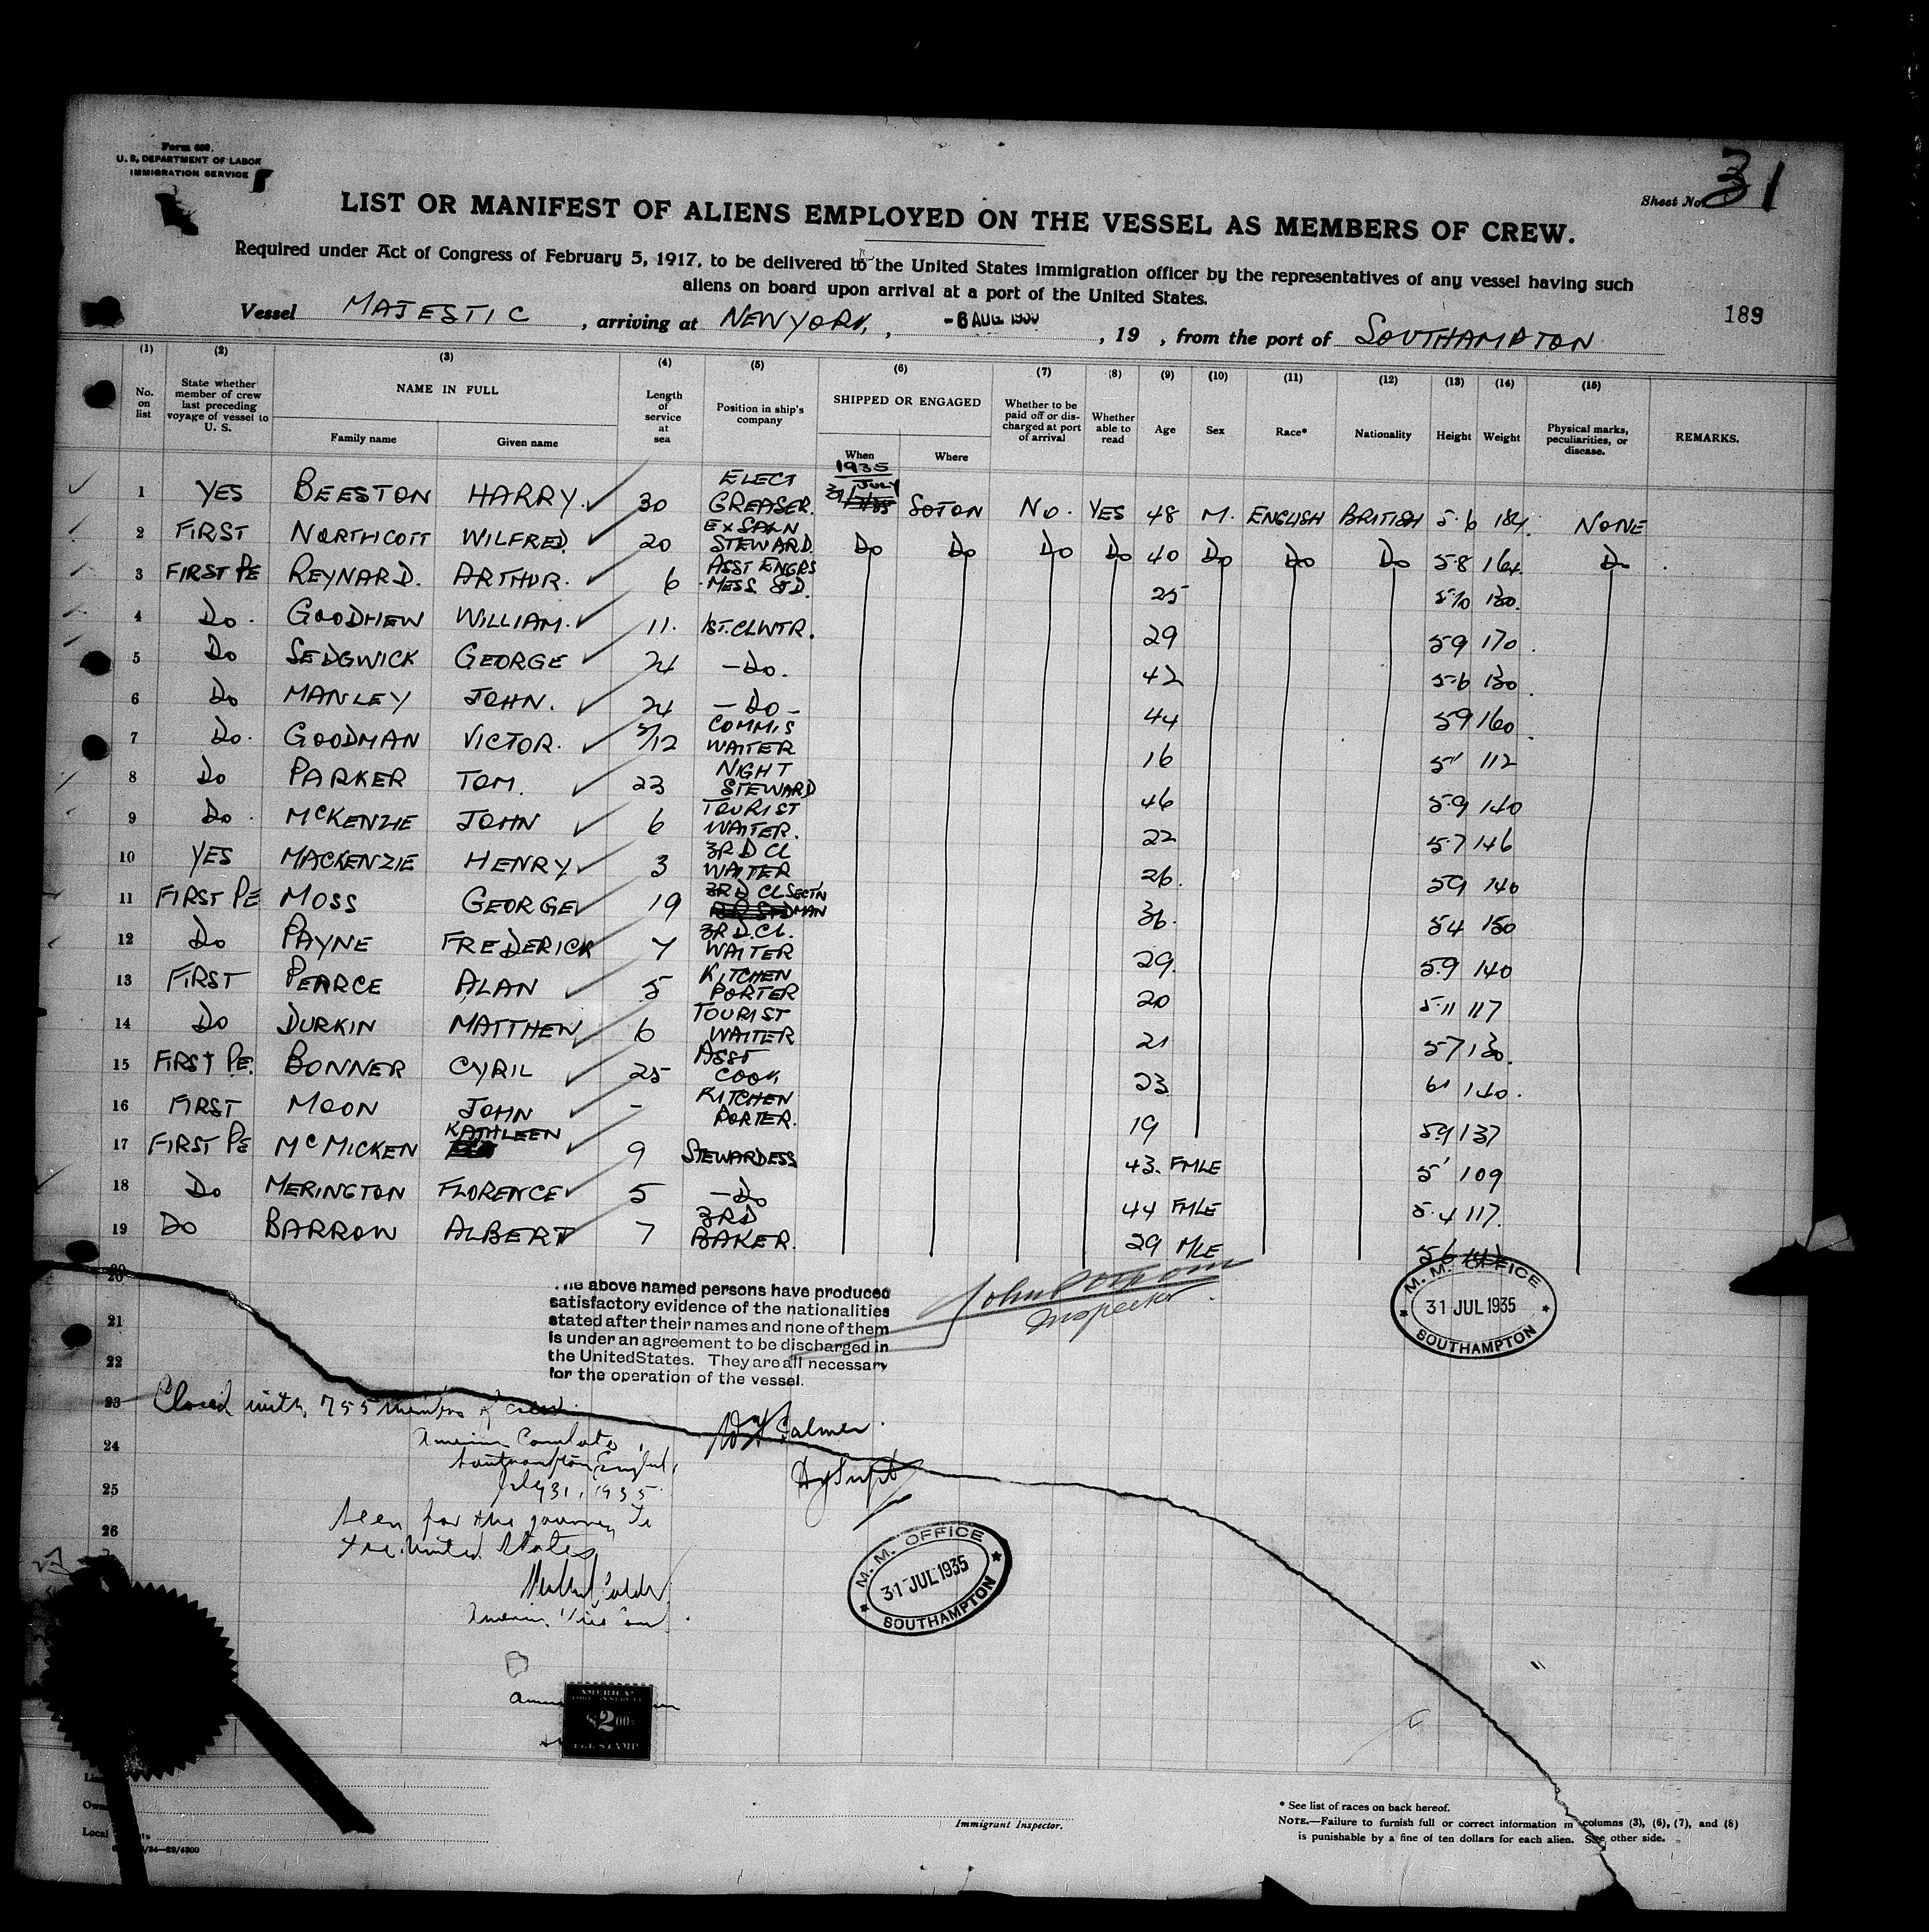 Form 689.
U. S. DEPARTMENT OF LABOR
IMMIGRATION SERVICE
Sheet No. 31
LIST OR MANIFEST OF ALIENS EMPLOYED ON THE VESSEL AS MEMBERS OF CREW.
Required under Act of Congress of February 5, 1917, to be delivered to the United States immigration officer by the representatives of any vessel having such
aliens on board upon arrival at a port of the United States.
189
Vessel MAJESTIC, arriving at NEW YORK, -6 AUG, 19 , from the port of SOUTHAMPTON
(1) (2) (3) (4) (5) (6) (7) (8) (9) (10) (11) (12) (13) (14) (15)
No. on list State whether member of crew last preceding voyage of vessel to U. S. NAME IN FULL Family name Given name Length of service at sea Position in ship's company SHIPPED OR ENGAGED When Where Whether to be paid off or discharged at port of arrival Whether able to read Age Sex Race* Nationality Height Weight Physical marks, peculiarities, or disease. REMARKS.
1935
1 YES BEESTON HARRY. 30 ELECT GREASER. 31 JULY SOTON NO. YES 48 M. ENGLISH BRITISH 5.6 184. NONE
2 FIRST NORTHCOTT WILFRED. 20 STEWARD. Do Do Do Do 40 Do Do Do 5.8 164. Do
3 FIRST PE REYNARD. ARTHUR. 6 ASST ENGRS MESS STD. 25 5/10 130.
4 Do. GOODHEW WILLIAM. 11. 1ST.CLWTR. 29 5.9 170.
5 Do SEDGWICK GEORGE 24 -Do. 42 5.6 130.
6 Do MANLEY JOHN. 24 -Do- 44 5.9 160.
7 Do. GOODMAN VICTOR. /12 COMMIS WAITER 16 5' 112
8 Do PARKER TOM. 23 NIGHT STEWARD 46 5.9 140
9 Do. McKENZIE JOHN 6 TOURIST WAITER. 22 5.7 146
10 YES MACKENZIE HENRY 3 3RD CL WAITER 26. 5.9 140
11 FIRST PE MOSS GEORGE 19 3RD CL SECTN MAN 36. 5.4 150
12 Do PAYNE FREDERICK 7 3RD.CL. WAITER 29. 5.9 140
13 FIRST PEARCE ALAN 5 KITCHEN PORTER 20 5.11 117
14 Do DURKIN MATTHEW 6 TOURIST WAITER 21 5.7 130.
15 FIRST PE. BONNER CYRIL 25 ASST COOK 23 140.
16 FIRST MOON JOHN - KITCHEN PORTER. 19 5.9 137
17 FIRST PE McMICKEN KATHLEEN 9 STEWARDESS 43. FMLE 5' 109
18 Do MERINGTON FLORENCE 5 -Do 44 FMLE 5.4 117.
19 Do BARROW ALBERT 7 3RD BAKER. 29 MLE 5.6
20
21
22
23
24
25
26
27
The above named persons have produced
satisfactory evidence of the nationalities
stated after their names and none of them
is under an agreement to be discharged in
the United States. They are all necessary
for the operation of the vessel.
Inspector
M. M. OFFICE
31 JUL 1935
SOUTHAMPTON
Closed with 755 members of crew.
American Consulate,
Southampton, England,
July 31, 1935
Seen for the journey to
the United States
American Vice Con
M. M. OFFICE
31 JUL 1935
SOUTHAMPTON
$2.00
FEE STAMP
Immigrant Inspector.
* See list of races on back hereof.
NOTE.—Failure to furnish full or correct information in columns (3), (6), (7), and (8)
is punishable by a fine of ten dollars for each alien. See other side.